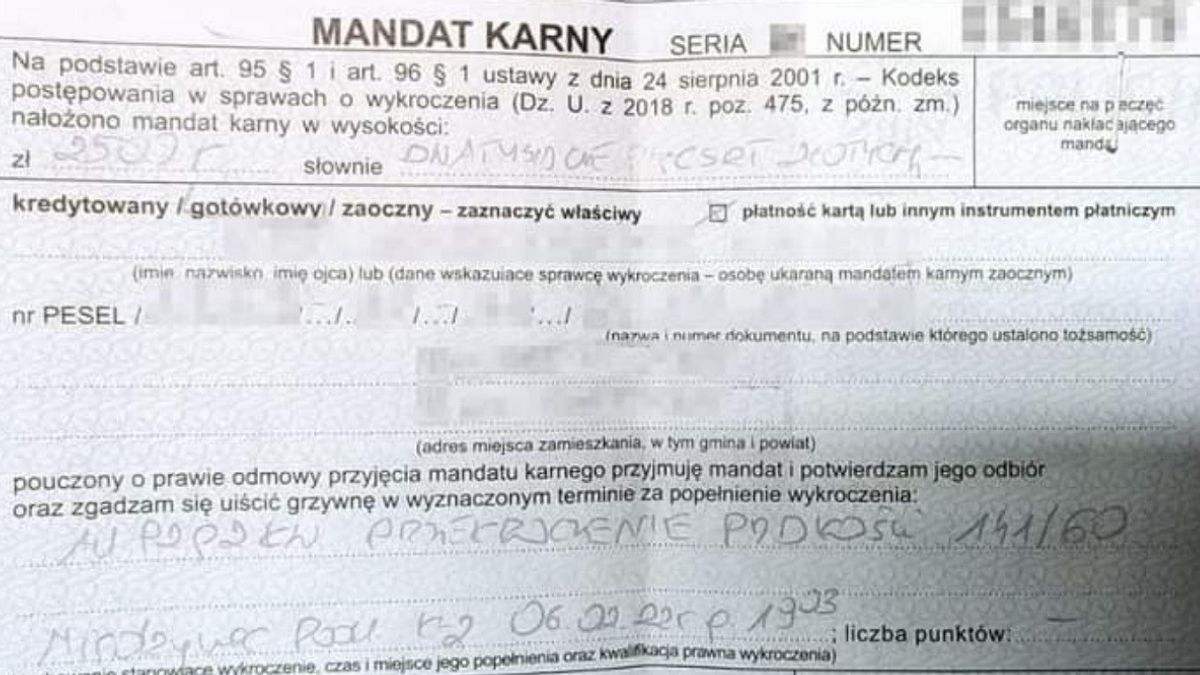 MANDAT KARNY SERIA NUMER
Na podstawie art. 95 § 1 i art. 96 § 1 ustawy z dnia 24 sierpnia 2001 r. – Kodeks
postępowania w sprawach o wykroczenia (Dz. U. z 2018 r. poz. 475, z późn. zm.)
nałożono mandat karny w wysokości:
miejsce na pieczęć
organu nakładającego
mandat
zł 2500 słownie
kredytowany / gotówkowy / zaoczny – zaznaczyć właściwy płatność kartą lub innym instrumentem płatniczym
(imię, nazwisko, imię ojca) lub (dane wskazujące sprawcę wykroczenia – osobę ukaraną mandatem karnym zaocznym)
nr PESEL /
(nazwa i numer dokumentu, na podstawie którego ustalono tożsamość)
(adres miejsca zamieszkania, w tym gmina i powiat)
pouczony o prawie odmowy przyjęcia mandatu karnego przyjmuję mandat i potwierdzam jego odbiór
oraz zgadzam się uiścić grzywnę w wyznaczonym terminie za popełnienie wykroczenia:
PRZEKROCZENIE 141/60
; liczba punktów: –
stanowiące wykroczenie, czas i miejsce jego popełnienia oraz kwalifikacja prawna wykroczenia)